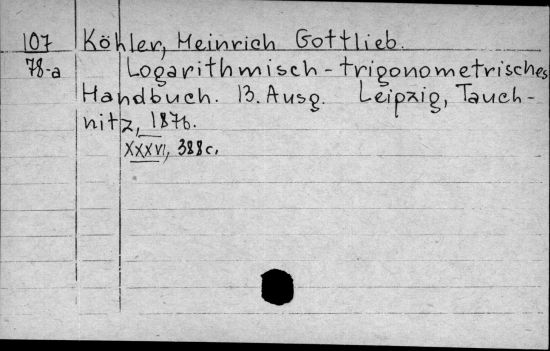 107 Köhler, Heinrich Gottlieb.
78-a Logarithmisch-trigonometrisches
Handbuch. 13. Ausg. Leipzig, Tauch-
nitz, 1876.
XXXVI, 388c.